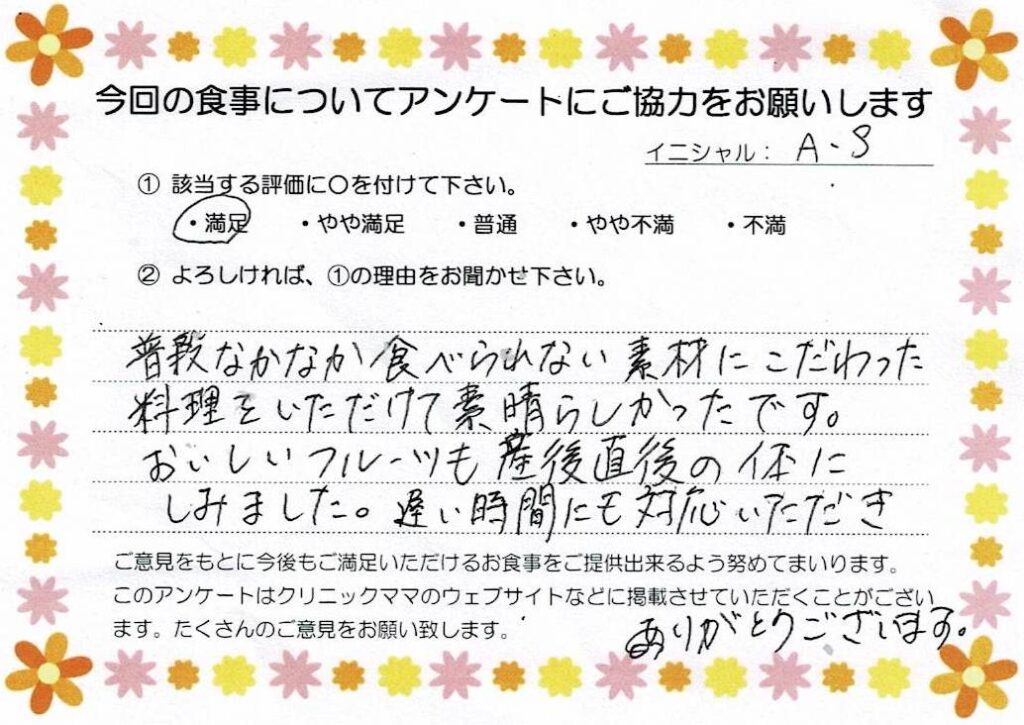 今回の食事についてアンケートにご協力をお願いします
イニシャル： A・S
① 該当する評価に〇を付けて下さい。
・満足 ・やや満足 ・普通 ・やや不満 ・不満
② よろしければ、①の理由をお聞かせ下さい。
普段なかなか食べられない素材にこだわった
料理をいただけて素晴らしかったです。
おいしいフルーツも産後直後の体に
しみました。遅い時間にも対応いただき
ご意見をもとに今後もご満足いただけるお食事をご提供出来るよう努めてまいります。
このアンケートはクリニックママのウェブサイトなどに掲載させていただくことがござい
ます。たくさんのご意見をお願い致します。
ありがとうございます。